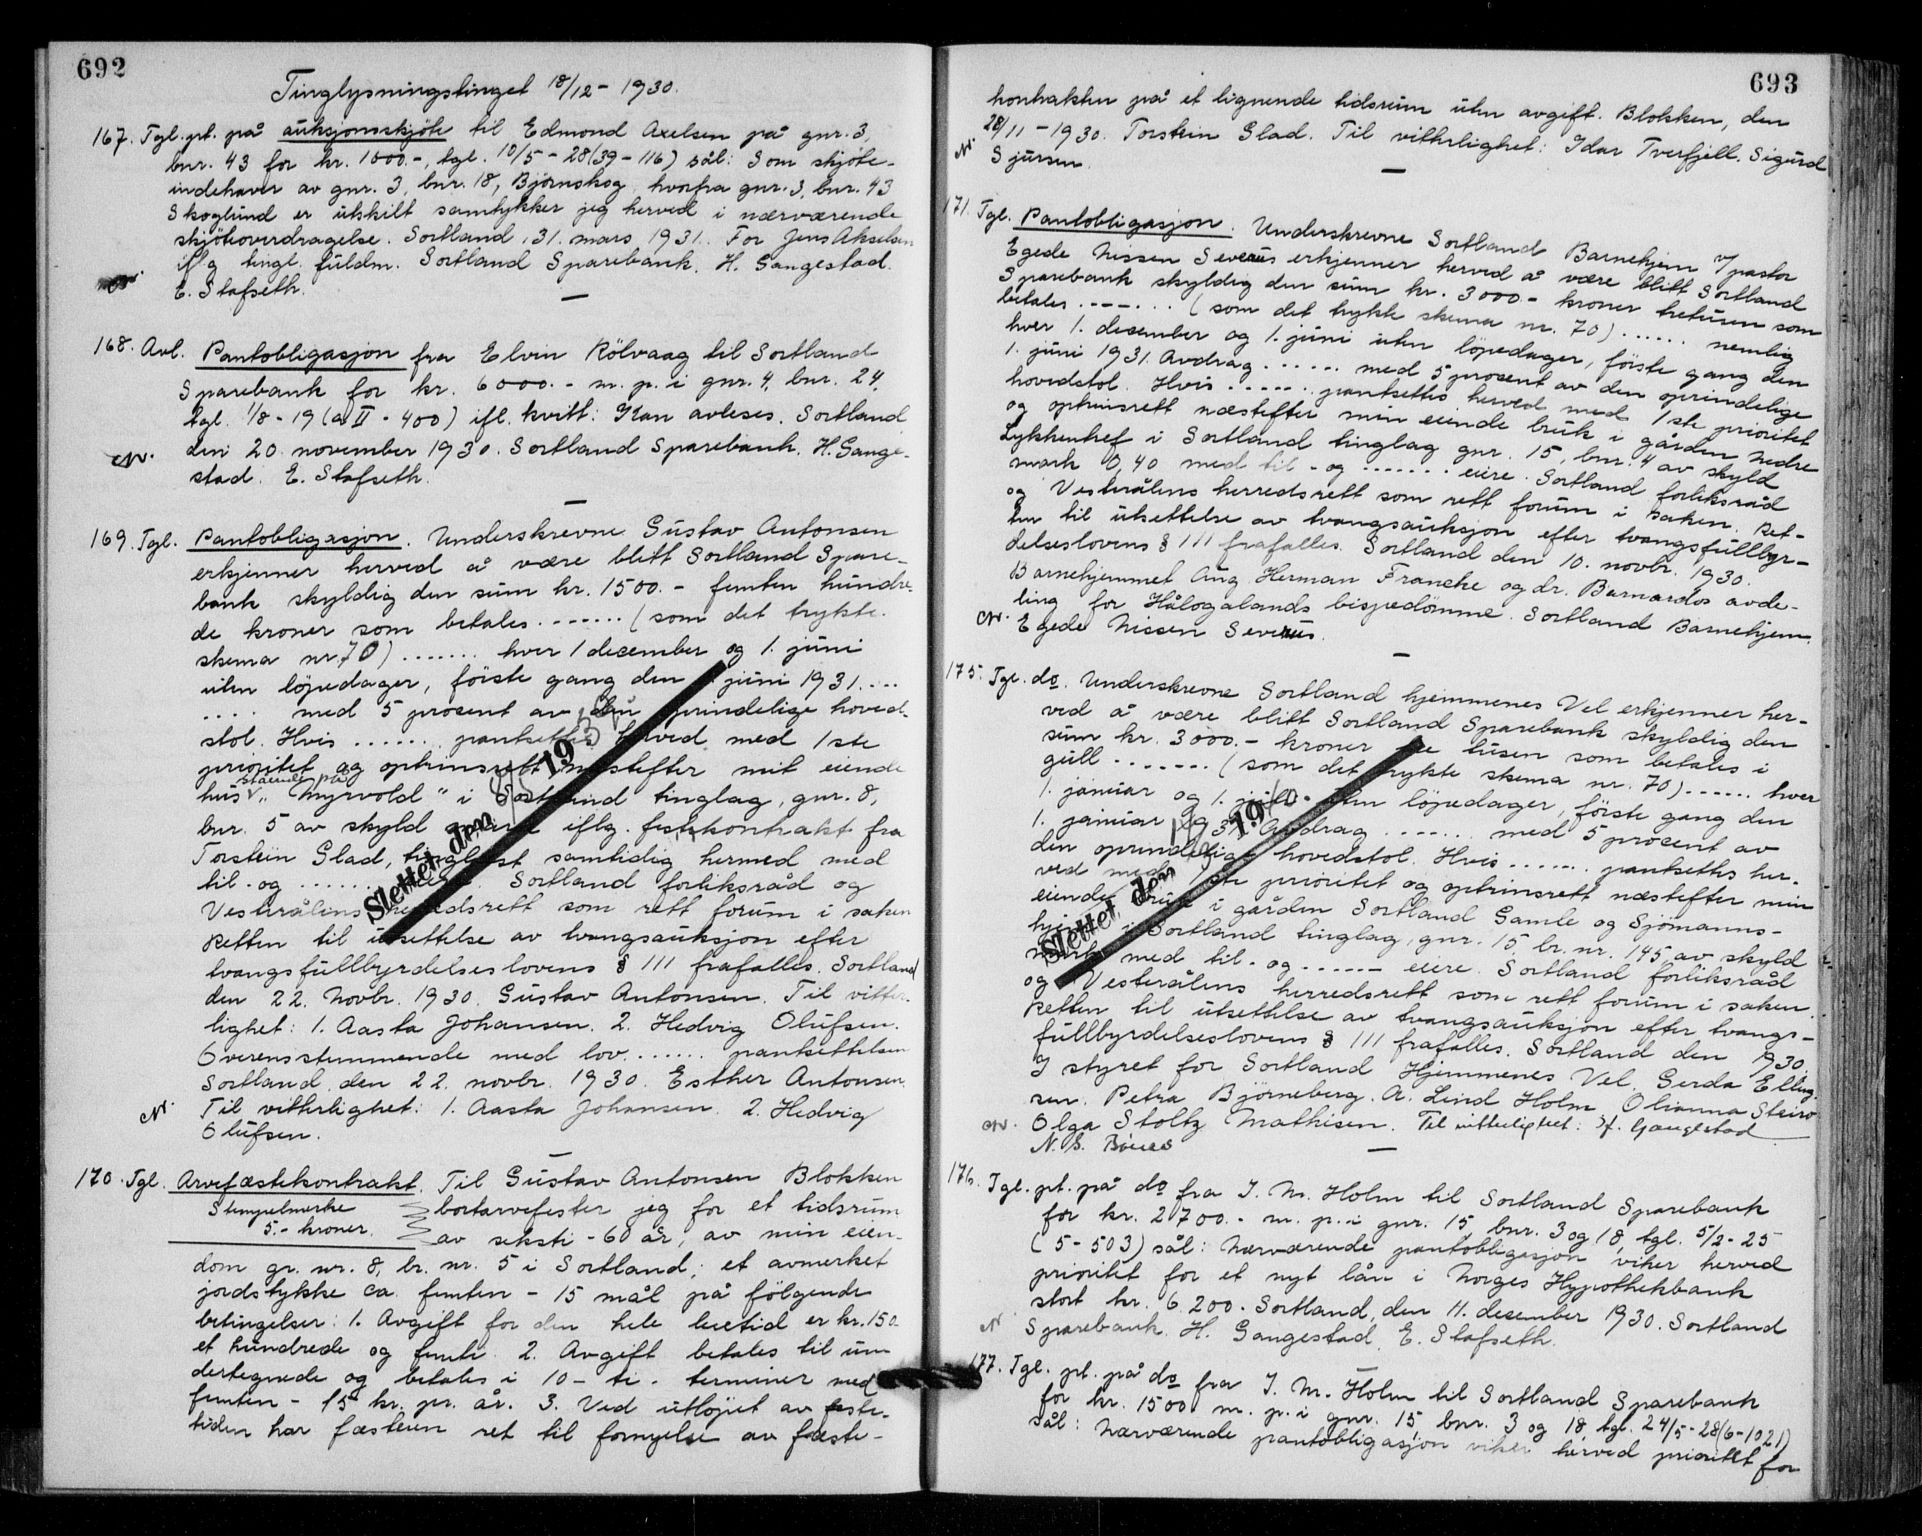 692
Tinglysningstinget 18/12 - 1930.
167. Tgl. pt. på auksjonsskjöte til Edmond Axelsen på gnr. 3,
bnr. 43 for kr. 1000.-, tgl. 10/5 - 28 (39 - 116) sål: Som skjöte-
indehaver av gnr. 3, bnr. 18, Björnskog, hvorfra gnr. 3, bnr. 43
Skoglund er utskilt samtykker jeg herved i nærværende
skjöteoverdragelse. Sortland, 31. mars 1931. For Jens Akselsen
tingl. fuldm. Sortland Sparebank. H. Gangestad.
E. Stafseth.
168. Avl. Pantobligasjon fra Elvin Rölvaag til Sortland
Sparebank for kr. 6000.- m. p. i gnr. 4, bnr. 24,
tgl. 1/8 - 19 (a II - 400) ifl. kvitt: Kan avleses. Sortland
den 20. november 1930. Sortland Sparebank. H. Gange-
stad. E. Stafseth.
169. Tgl. Pantobligasjon. Underskrevne Gustav Antonsen
erkjenner herved å være blitt Sortland Spare-
bank skyldig den sum kr. 1500.- femten hundre-
de kroner som betales ....... (som det trykte
skema nr. 70) ....... hver 1 december og 1. juni
uten löpedager, förste gang den 1 juni 1931 ....
.... med 5 prosent av den oprindelige hoved-
stol. Hvis ....... pantsettes herved med 1ste
prioritet og optrinsrett næstefter mit eiende
hus stående på "Myrvold" i Sortland tinglag, gnr. 8,
bnr. 5 av skyld mark iflg. festekontrakt fra
Torstein Glad, tinglyst samtidig hermed med
til- og ....... eiere. Sortland forliksråd og
Vesterålens herredsrett som rett forum i saken
Retten til utsettelse av tvangsauksjon efter
tvangsfullbyrdelseslovens § 111 frafalles. Sortland
den 22. Novbr. 1930. Gustav Antonsen. Til vitter-
lighet: 1. Aasta Johansen. 2. Hedvig Olufsen.
Overensstemmende med lov ....... pantsettelsen
Sortland, den 22. novbr. 1930. Esther Antonsen.
Til vitterlighet: 1. Aasta Johansen. 2. Hedvig
Olufsen.
Slettet den 19
170. Tgl. Arvefæstekontrakt. Til Gustav Antonsen Blokken
Stempelmerke bortarvefester jeg for et tidsrum
5.- kroner. av seksti - 60 år, av min eien-
dom gr. nr. 8, br. nr. 5 i Sortland, et avmerket
jordstykke ca. femten - 15 mål på fölgende
betingelser: 1. Avgift for den hele leietid er kr. 150
et hundrede og femti. 2. Avgift betales til un-
dertegnede og betales i 10 - ti - terminer med
femten - 15 kr. pr. år. 3. Ved utlöpet av feste-
tiden har fæsteren ret til fornyelse av fæste-
693
kontrakten på et lignende tidsrum uten avgift. Blokken, den
28/11 - 1930. Torstein Glad. Til vitterlighet: Idar Tverfjell. Sigurd
Sjursen.
171. Tgl. Pantobligasjon. Underskrevne Sortland Barnehjem v/ pastor
Egede Nissen Severus erkjenner herved å være blitt Sortland
Sparebank skyldig den sum kr. 3000.- kroner tretusen som
betales ....... (som det trykte skema nr. 70) ....... nemlig
hver 1. december og 1. juni uten löpedager, förste gang den
1. juni 1931. Avdrag ....... med 5 prosent av den oprindelige
hovedstol. Hvis ....... pantsettes herved med 1ste prioritet
og optrinsrett næstefter min eiende bruk i gården Nedre
Lykkentref i Sortland tinglag gnr. 15, bnr. 4 av skyld
mark 0,40 med til- og ....... eiere. Sortland forliksråd
og Vesterålens herredsrett som rett forum i saken. Ret-
ten til utsettelse av tvangsauksjon efter tvangsfullbyr-
delseslovens § 111 frafalles. Sortland den 10. novbr. 1930.
Barnehjemmet Aug Herman Francke og dr. Barnardos avde-
ling for Hålogalands bispedömme. Sortland Barnehjem.
Egede Nissen Severus.
175. Tgl. do. Underskrevne Sortland hjemmenes Vel erkjenner her-
ved å være blitt Sortland Sparebank skyldig den
sum kr. 3000.- kroner tre tusen som betales i
gull ....... (som det trykte skema nr. 70) ....... hver
1. januar og 1. juli uten löpedager, förste gang den
1. januar Avdrag ....... med 5 prosent av
den oprindelige hovedstol. Hvis ....... pantsettes her-
ved med 1ste prioritet og optrinsrett næstefter min
eiende bruk i gården Sortland Gamle og Sjömanns-
hjem i Sortland tinglag, gnr. 15 br. nr. 145 av skyld
mark med til- og ....... eiere. Sortland forliksråd
og Vesterålens herredsrett som rett forum i saken.
Retten til utsettelse av tvangsauksjon efter tvangs-
fullbyrdelseslovens § 111 frafalles. Sortland den 1930.
I styret for Sortland Hjemmenes Vel. Gerda Elling-
sen. Petra Björneberg. A. Lind Holm. Olianna Steiro
Olga Stoltz Mathisen. Til vitterlighet: H. Gangestad
N. S.
Slettet den 19
176. Tgl. pt. på do fra J. M. Holm til Sortland Sparebank
for kr. 2700.- m. p. i gnr. 15, bnr. 3 og 18, tgl. 5/2 - 25
(5 - 503) sål: Nærværende pantobligasjon viker herved
prioritet for et nyt lån i Norges Hypothekbank
stort kr. 6200. Sortland, den 11. desember 1930. Sortland
Sparebank. H. Gangestad. E. Stafseth.
177. Tgl. pt. på do fra J. M. Holm til Sortland Sparebank
for kr. 1500 m. p. i gnr. 15, bnr. 3 og 18, tgl. 24/5 - 28 (6 - 1021)
sål: Nærværende pantobligasjon viker herved prioritet for